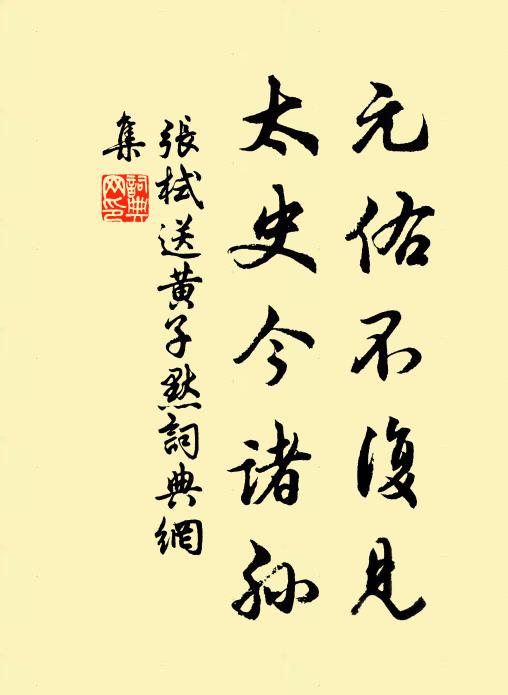 元佑不復見
太史今诸孙
張栻送黄子默詞典網
集
詞典
网印